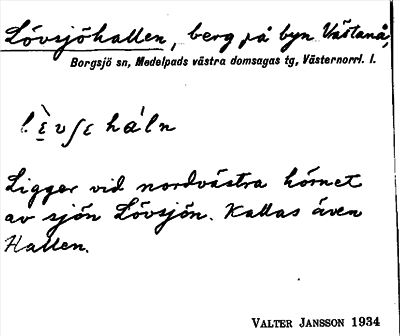 Lövsjöhallen, berg på byn Västanå,
Borgsjö sn, Medelpads västra domsagas tg, Västernorrl. l.
Ligger vid nordvästra hörnet
av sjön Lövsjön. Kallas även
Hallen.
VALTER JANSSON 1934